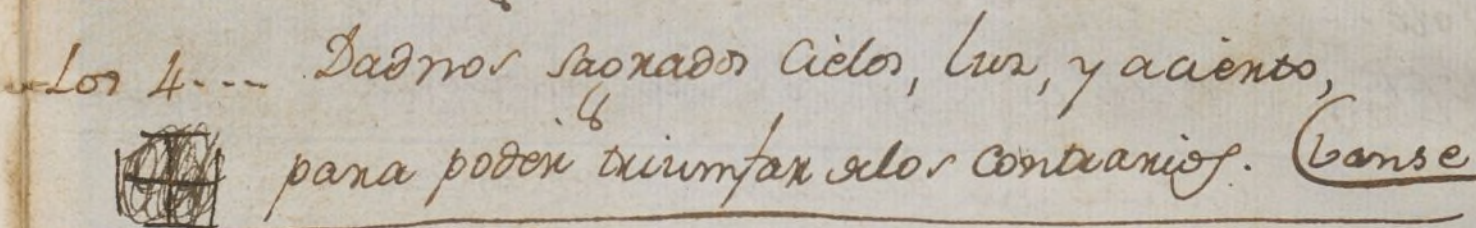 Los 4.... Dadnos sagrados Cielos, luz, y acierto,
para poder triumfar delos contrarios. (banse